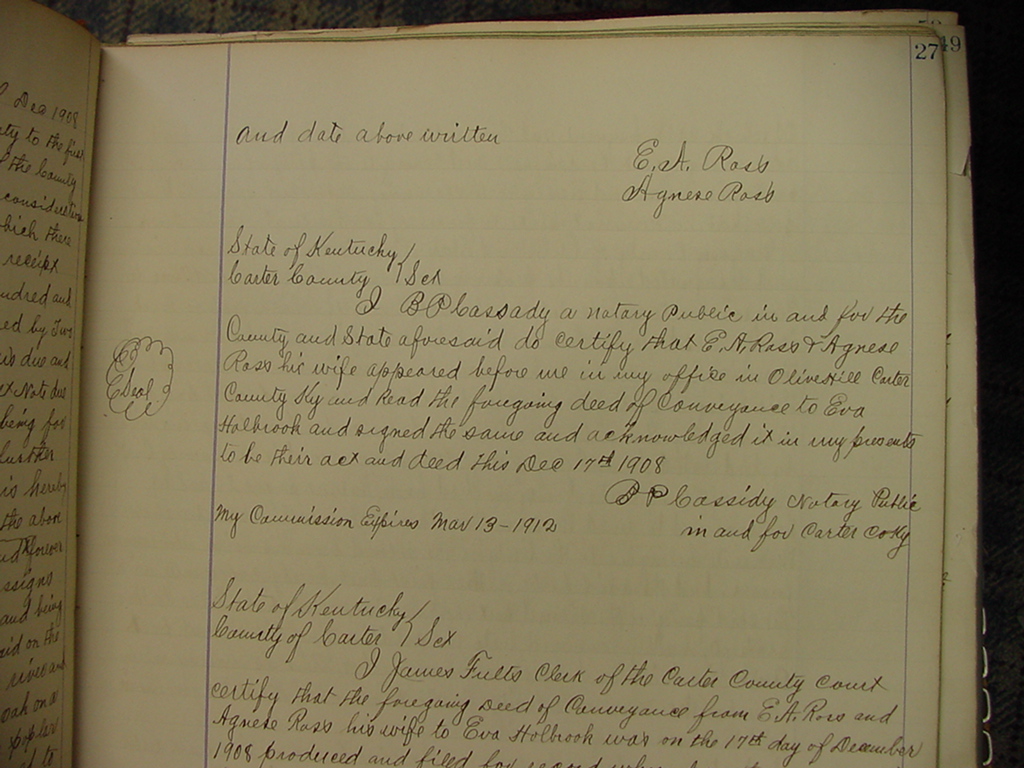 Dec 1908
ty to the first
the County
consideration
hich there
receipt
undred and
ed by Two
due and
Note due
being for
further
is hereby
the above
forever
assigns
and being
id on the
river and
oak on a
poplar
to
49
27
and date above written
E. A. Ross
Agnese Ross
State of Kentucky /
Carter County / Sct
I B P Cassady a notary Public in and for the
County and State aforesaid do certify that E. A. Ross & Agnese
Ross his wife appeared before me in my office in Olive Hill Carter
County Ky and Read the foregoing deed of Conveyance to Eva
Holbrook and signed the same and acknowledged it in my presents
to be their act and deed this Dec 17th 1908
B P Cassidy Notary Public
My Commission Expires Mar 13 - 1912
in and for Carter Co Ky
Seal
State of Kentucky /
County of Carter / Sct
I James Fults Clerk of the Carter County court
certify that the foregoing Deed of Conveyance from E. A. Ross and
Agnese Ross his wife to Eva Holbrook was on the 17th day of December
1908 produced and filed for record